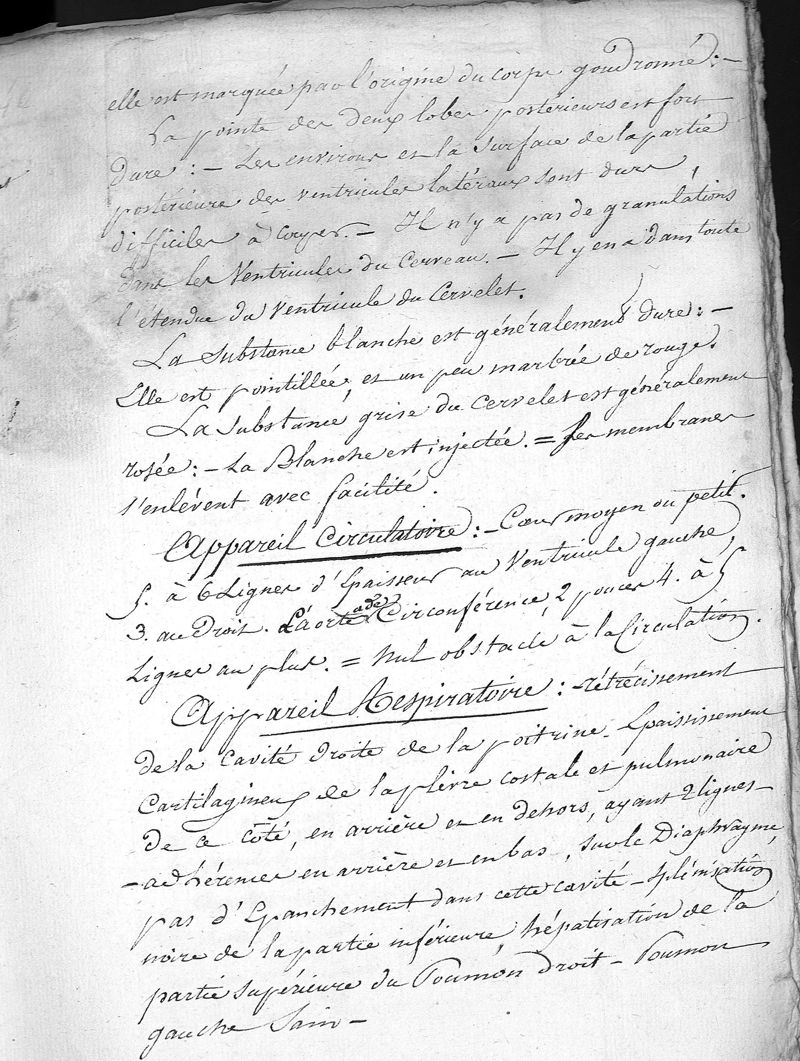 elle est marquée par l'origine du corps goudronné : –
La pointe des deux lobes postérieurs est fort
dure : – Les environs et la surface de la partie
postérieure des ventricules latéraux sont durs,
difficiles à couper. – Il n'y a pas de granulations
dans les Ventricules du Cerveau. – Il y en a dans toute
l'étendue du Ventricule du Cervelet.
La substance blanche est généralement dure : –
Elle est pointillée, et un peu marbrée de rouge.
La substance grise du Cervelet est généralement
rosée : – La Blanche est injectée. = Les membranes
s'enlèvent avec facilité.
Appareil Circulatoire : – Coeur moyen ou petit.
5. à 6 Lignes d'Epaisseur au Ventricule gauche,
3. au Droit. L'aorte a de Circonférence, 2 pouces 4. à 5
Lignes au plus. = Nul obstacle à la Circulation.
Appareil Respiratoire : – rétrécissement
de la Cavité droite de la poitrine – Epaississement
Cartilagineux de la plèvre costale et pulmonaire
de ce côté, en arrière et en dehors, ayant 2 lignes –
– adhérences en arrière et en bas, sur le Diaphragme,
pas d'Epanchement dans cette cavité – splénisation
noire de la partie inférieure, hépatisation de la
partie supérieure du Poumon droit – Poumon
gauche Sain –